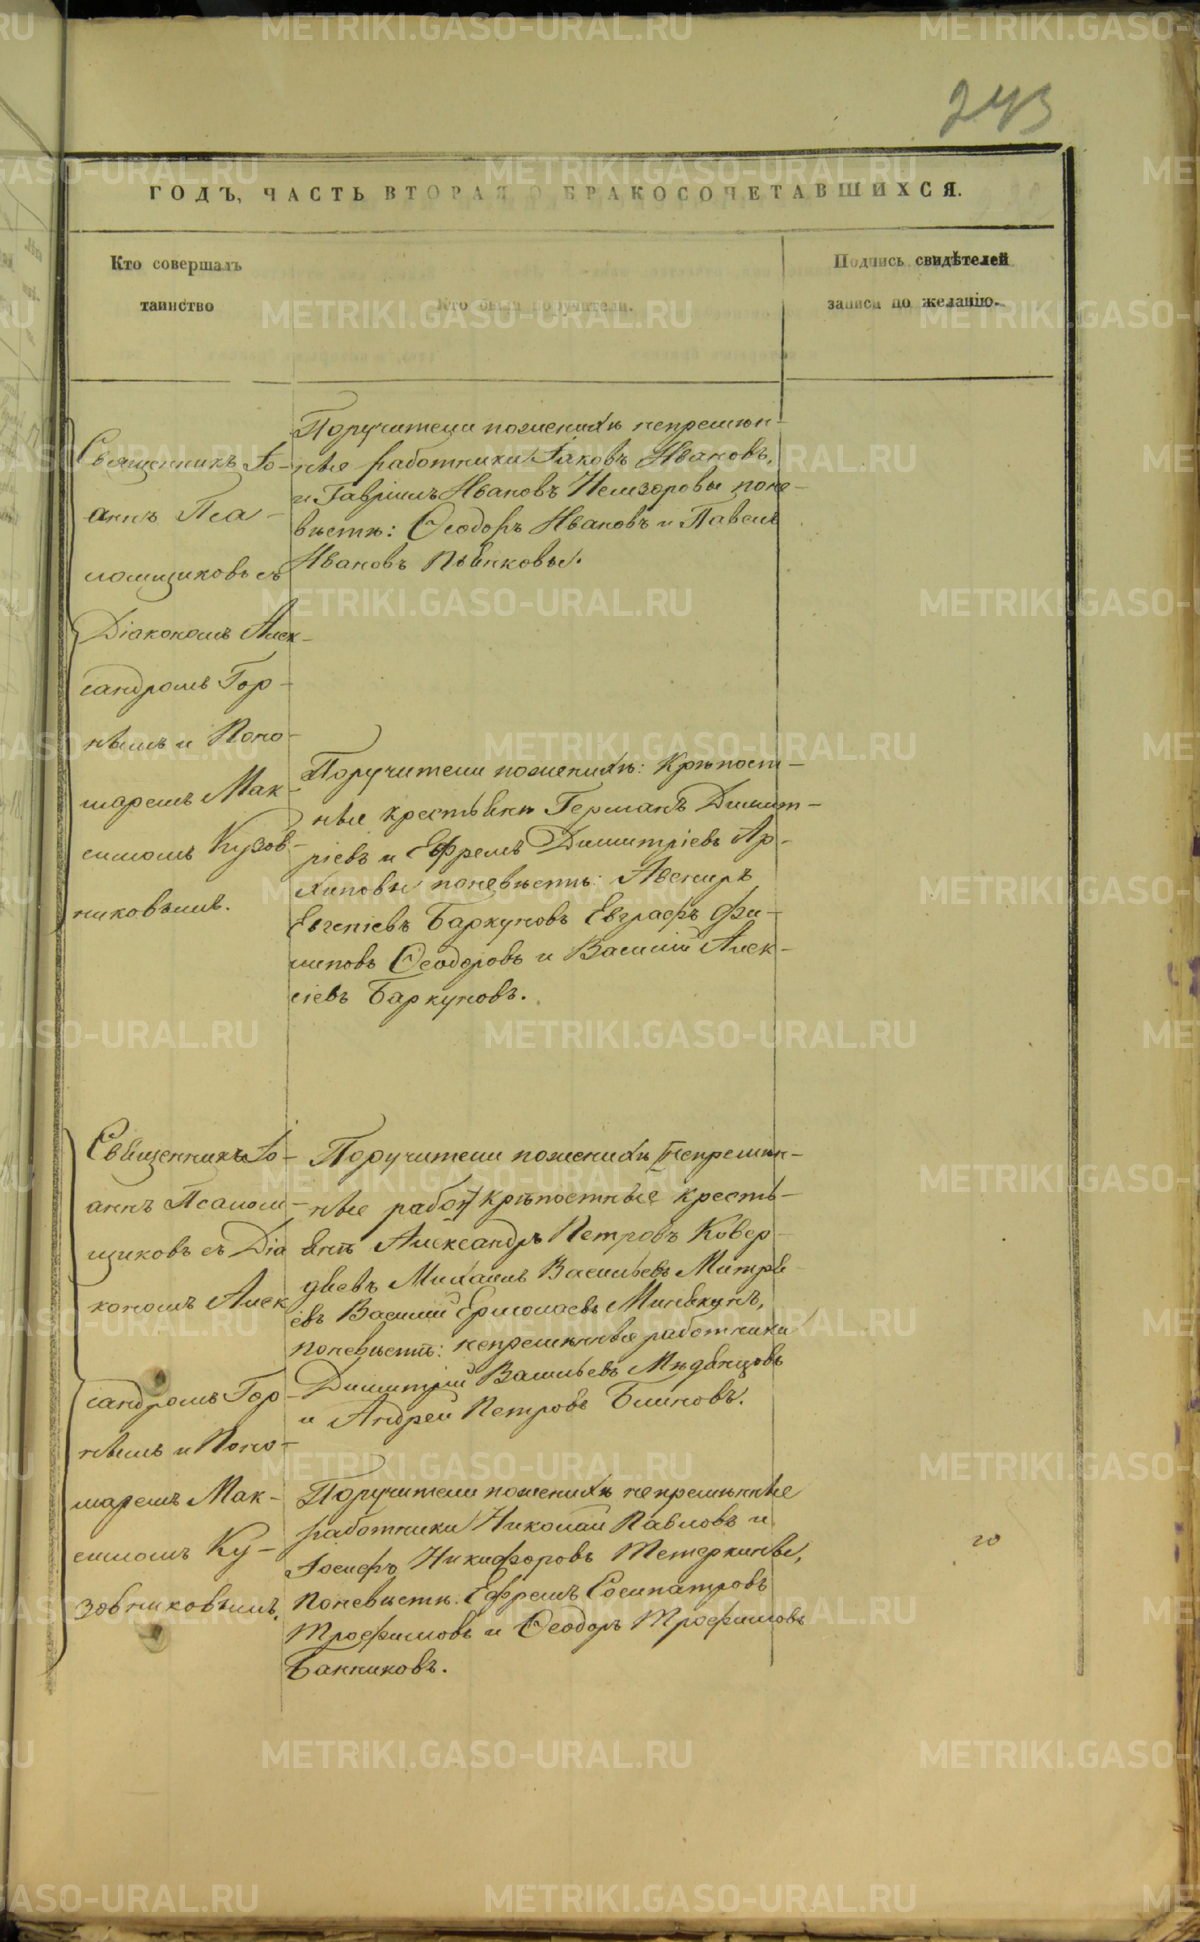 243
ГОДЪ, ЧАСТЬ ВТОРАЯ О БРАКОСОЧЕТАВШИХСЯ.
Кто совершалъ
таинство
Кто были поручители.
Подпись свидѣтелей
записи по желанію.
Священникъ Іо-
аннъ Пса-
ломщиковъ съ
Діакономъ Алек-
сандромъ Гор-
нымъ и Поно-
маремъ Мак-
симомъ Кузов-
никовымъ.
Поручители по женихѣ непремѣн-
ные работники Іаковъ Ивановъ,
и Гавріилъ Ивановъ Немзоровы по не-
вѣстѣ: Ѳеодоръ Ивановъ и Павелъ
Ивановъ Пьянковы.
Поручители по женихѣ: Крѣпост-
ные крестьяне Германъ Димит-
ріевъ и Ефремъ Димитріевъ Ар-
хиповы по невѣстѣ: Авениръ
Евгеніевъ Баркуновъ Евграфъ Фи-
липовъ Ѳеодоровъ и Василій Алек-
сіевъ Баркуновъ.
Священникъ Іо-
аннъ Псалом-
щиковъ съ Діа
кономъ Алек
сандромъ Гор-
нымъ и Поно-
маремъ Мак-
симомъ Ку-
зовниковымъ.
Поручители по женихѣ [непремѣн-
ные работ] крѣпостные кресть-
яне Александръ Петровъ Ковер-
Михаилъ Васильевъ Митре-
евъ Василій Ермолаевъ
по невѣстѣ: непремѣнные работники
Димитрій Васильевъ Мѣдянцовъ
и Андрей Петровъ Блиновъ.
Поручители по женихѣ непремѣнные
работники Николай Павловъ и
Іосифъ Никифоровъ Тетеркины,
по невѣстѣ: Ефремъ Сосипатровъ
Трофимовъ и Ѳеодоръ Трофимовъ
Банниковъ.
METRIKI.GASO-URAL.RU